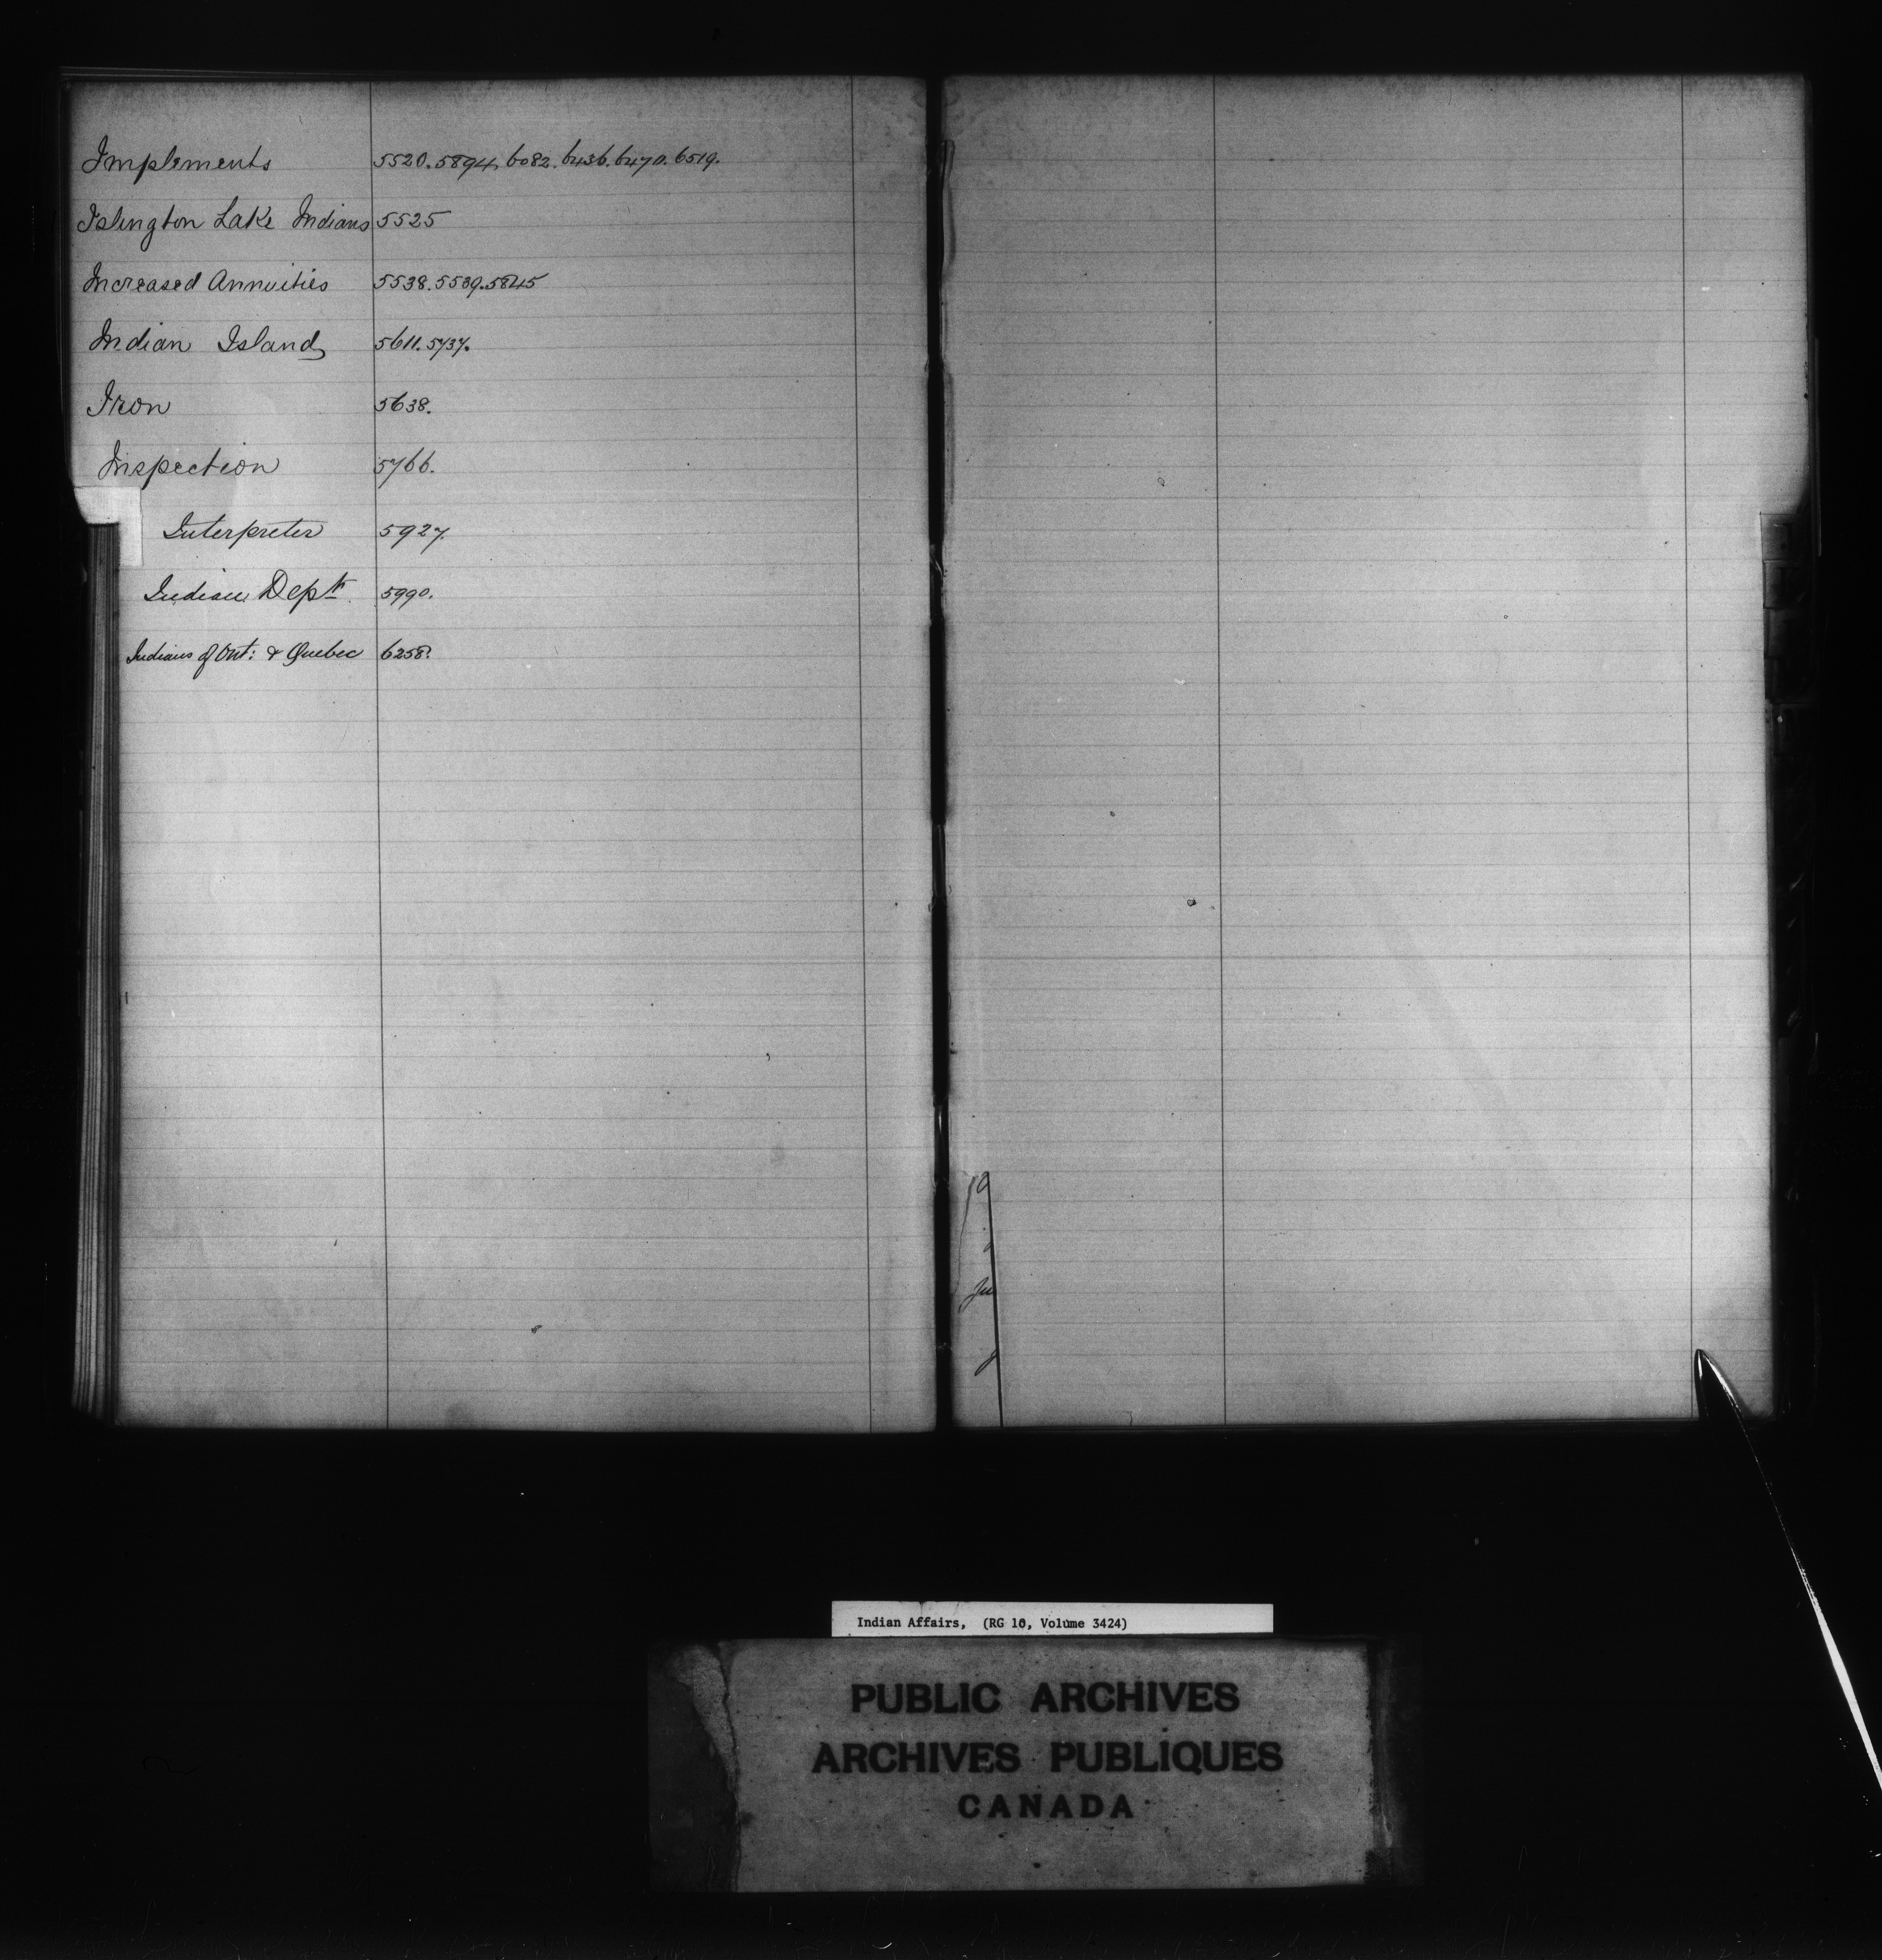 Implements 5520. 5894, 6082. 6436. 6470. 6519.
Islington Lake Indians 5525
Increased Annuities 5538. 5539. 5845
Indian Island 5611. 5737.
Iron 5638.
Inspection 5766.
Interpreter 5927.
Indian Dept. 5990.
Indians of Ont: & Quebec 6258.
Ju
Indian Affairs, (RG 10, Volume 3424)
PUBLIC ARCHIVES
ARCHIVES PUBLIQUES
CANADA